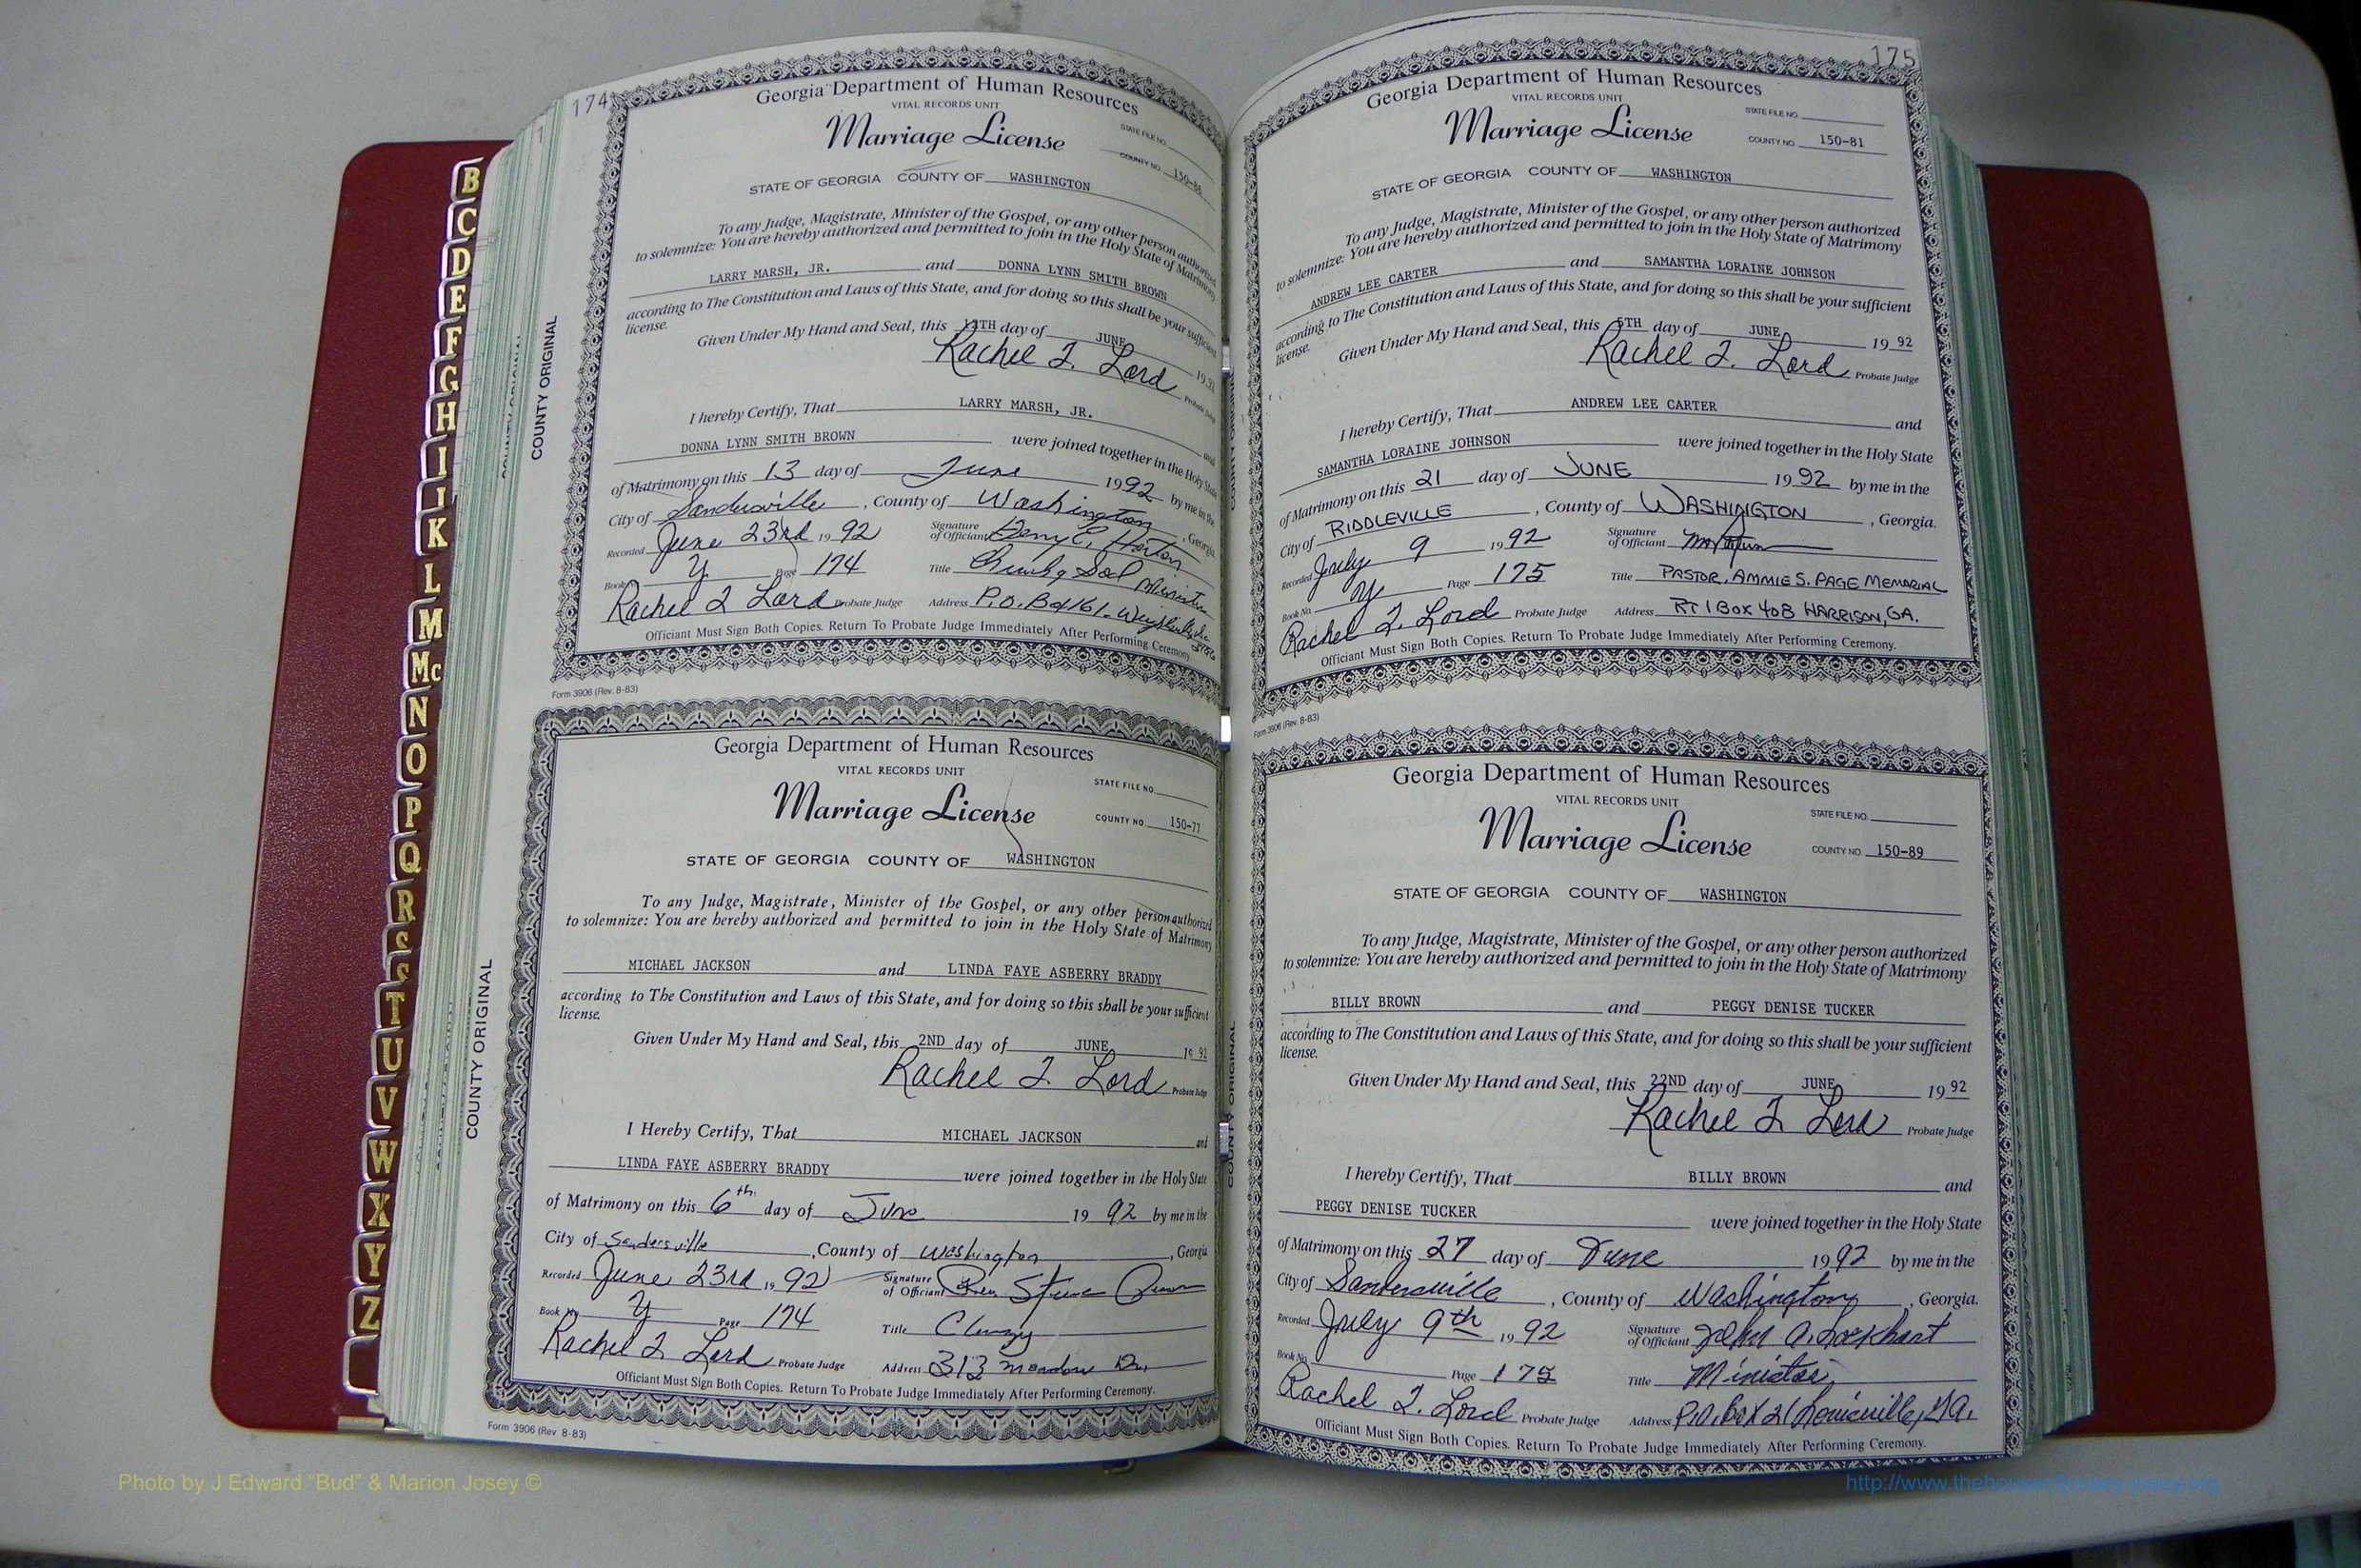 174
Georgia Department of Human Resources
VITAL RECORDS UNIT
Marriage License
STATE FILE NO.
COUNTY NO. 150-86
STATE OF GEORGIA COUNTY OF WASHINGTON
To any Judge, Magistrate, Minister of the Gospel, or any other person authorized
to solemnize: You are hereby authorized and permitted to join in the Holy State of Matrimony
LARRY MARSH, JR. and DONNA LYNN SMITH BROWN
according to The Constitution and Laws of this State, and for doing so this shall be your sufficient
license.
Given Under My Hand and Seal, this day of JUNE 19 92
Rachel T. Lord Probate Judge
I hereby Certify, That LARRY MARSH, JR. and
DONNA LYNN SMITH BROWN were joined together in the Holy State
of Matrimony on this 13 day of June 1992 by me in the
City of Sandersville, County of Washington, Georgia.
Recorded June 23rd 1992 Signature of Officiant Horton
Book No. Y Page 174 Title Minister
Rachel T Lord Probate Judge Address P.O. Box 161
Officiant Must Sign Both Copies. Return To Probate Judge Immediately After Performing Ceremony.
Form 3906 (Rev. 8-83)
COUNTY ORIGINAL
Georgia Department of Human Resources
VITAL RECORDS UNIT
Marriage License
STATE FILE NO.
COUNTY NO. 150-77
STATE OF GEORGIA COUNTY OF WASHINGTON
To any Judge, Magistrate, Minister of the Gospel, or any other person authorized
to solemnize: You are hereby authorized and permitted to join in the Holy State of Matrimony
MICHAEL JACKSON and LINDA FAYE ASBERRY BRADDY
according to The Constitution and Laws of this State, and for doing so this shall be your sufficient
license.
Given Under My Hand and Seal, this 2ND day of JUNE 19 92
Rachel T. Lord Probate Judge
I Hereby Certify, That MICHAEL JACKSON and
LINDA FAYE ASBERRY BRADDY were joined together in the Holy State
of Matrimony on this 6th day of June 19 92 by me in the
City of Sandersville, County of Washington, Georgia
Recorded June 23rd 1992 Signature of Officiant Rev Steve
Book No Y Page 174 Title Clergy
Rachel T Lord Probate Judge Address 313 Meadow Dr.
Officiant Must Sign Both Copies. Return To Probate Judge Immediately After Performing Ceremony.
Form 3906 (Rev. 8-83)
COUNTY ORIGINAL
175
Georgia Department of Human Resources
VITAL RECORDS UNIT
Marriage License
STATE FILE NO.
COUNTY NO. 150-81
STATE OF GEORGIA COUNTY OF WASHINGTON
To any Judge, Magistrate, Minister of the Gospel, or any other person authorized
to solemnize: You are hereby authorized and permitted to join in the Holy State of Matrimony
ANDREW LEE CARTER and SAMANTHA LORAINE JOHNSON
according to The Constitution and Laws of this State, and for doing so this shall be your sufficient
license.
Given Under My Hand and Seal, this 5TH day of JUNE 19 92
Rachel T. Lord Probate Judge
I hereby Certify, That ANDREW LEE CARTER and
SAMANTHA LORAINE JOHNSON were joined together in the Holy State
of Matrimony on this 21 day of JUNE 19 92 by me in the
City of RIDDLEVILLE, County of WASHINGTON, Georgia.
Recorded July 9 1992 Signature of Officiant
Book No. Y Page 175 Title PASTOR, AMMIE S. PAGE MEMORIAL
Rachel T. Lord Probate Judge Address RT 1 BOX 40B HARRISON, GA.
Officiant Must Sign Both Copies. Return To Probate Judge Immediately After Performing Ceremony.
3906 (Rev. 8-83)
Georgia Department of Human Resources
VITAL RECORDS UNIT
Marriage License
STATE FILE NO.
COUNTY NO. 150-89
STATE OF GEORGIA COUNTY OF WASHINGTON
To any Judge, Magistrate, Minister of the Gospel, or any other person authorized
to solemnize: You are hereby authorized and permitted to join in the Holy State of Matrimony
BILLY BROWN and PEGGY DENISE TUCKER
according to The Constitution and Laws of this State, and for doing so this shall be your sufficient
license.
Given Under My Hand and Seal, this 22ND day of JUNE 19 92
Rachel T. Lord Probate Judge
I hereby Certify, That BILLY BROWN and
PEGGY DENISE TUCKER were joined together in the Holy State
of Matrimony on this 27 day of June 1992 by me in the
City of Sandersville, County of Washington, Georgia.
Recorded July 9th 1992 Signature of Officiant John A. Lockhart
Book No. Page 175 Title Minister
Rachel T. Lord Probate Judge Address P.O. Box 21 Louisville, GA.
Officiant Must Sign Both Copies. Return To Probate Judge Immediately After Performing Ceremony.
COUNTY ORIGINAL
B
C
D
E
F
G
H
I
J
K
L
M
Mc
N
O
P
Q
R
S
S
T
U
V
W
X
Y
Z
Photo by J Edward "Bud" & Marion Josey ©
http://www.thehouseofjossey-josey.org